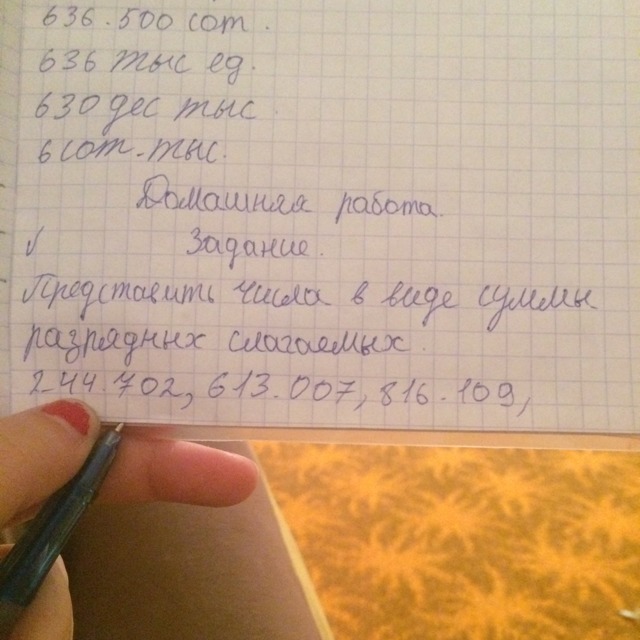 636.500 сот.
636 тыс ед.
630 дес тыс
6 сот. тыс.
Домашняя работа.
√ Задание.
Представить числа в виде суммы
разрядных слагаемых.
244.702, 613.007, 816.109,